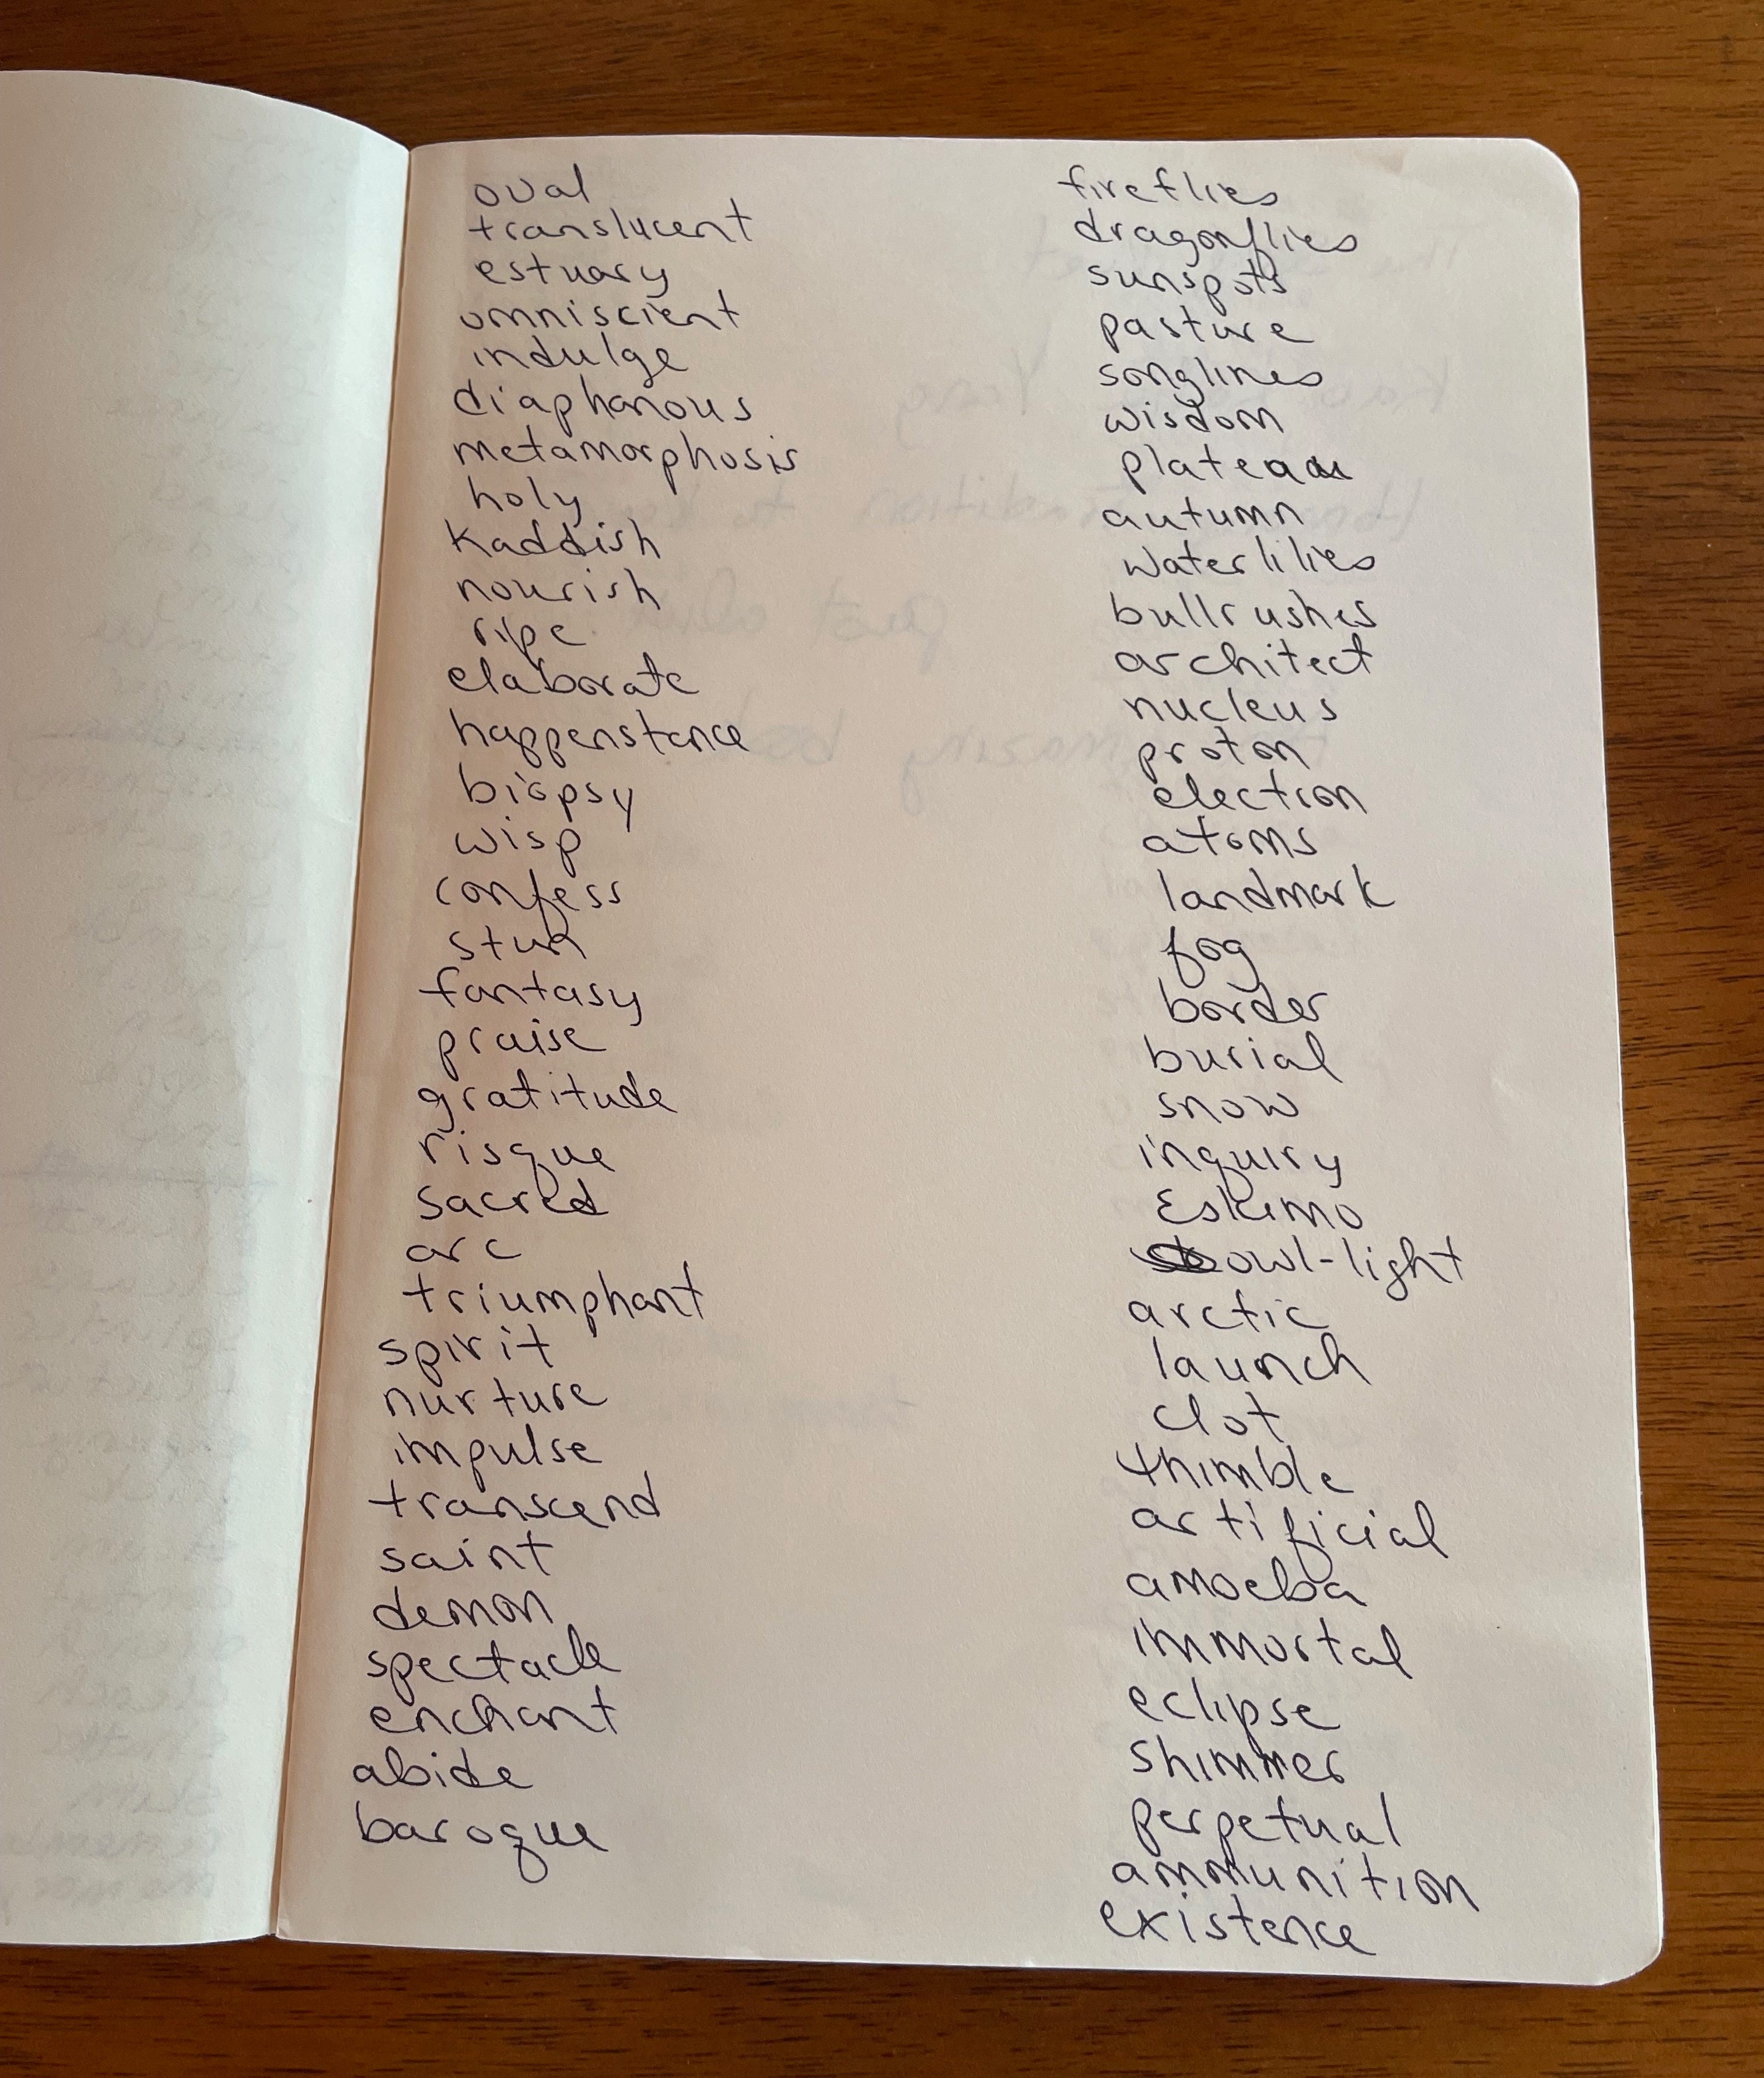 oval
translucent
estuary
omniscient
indulge
diaphanous
metamorphosis
holy
Kaddish
nourish
ripe
elaborate
happenstance
biopsy
wisp
confess
stun
fantasy
praise
gratitude
risque
sacred
arc
triumphant
spirit
nurture
impulse
transcend
saint
demon
spectacle
enchant
abide
baroque
fireflies
dragonflies
sunspots
pasture
songlines
wisdom
plateau
autumn
waterlilies
bullrushes
architect
nucleus
proton
election
atoms
landmark
fog
border
burial
snow
inquiry
Eskimo
owl-light
arctic
launch
clot
thimble
artificial
amoeba
immortal
eclipse
shimmer
perpetual
ammunition
existence